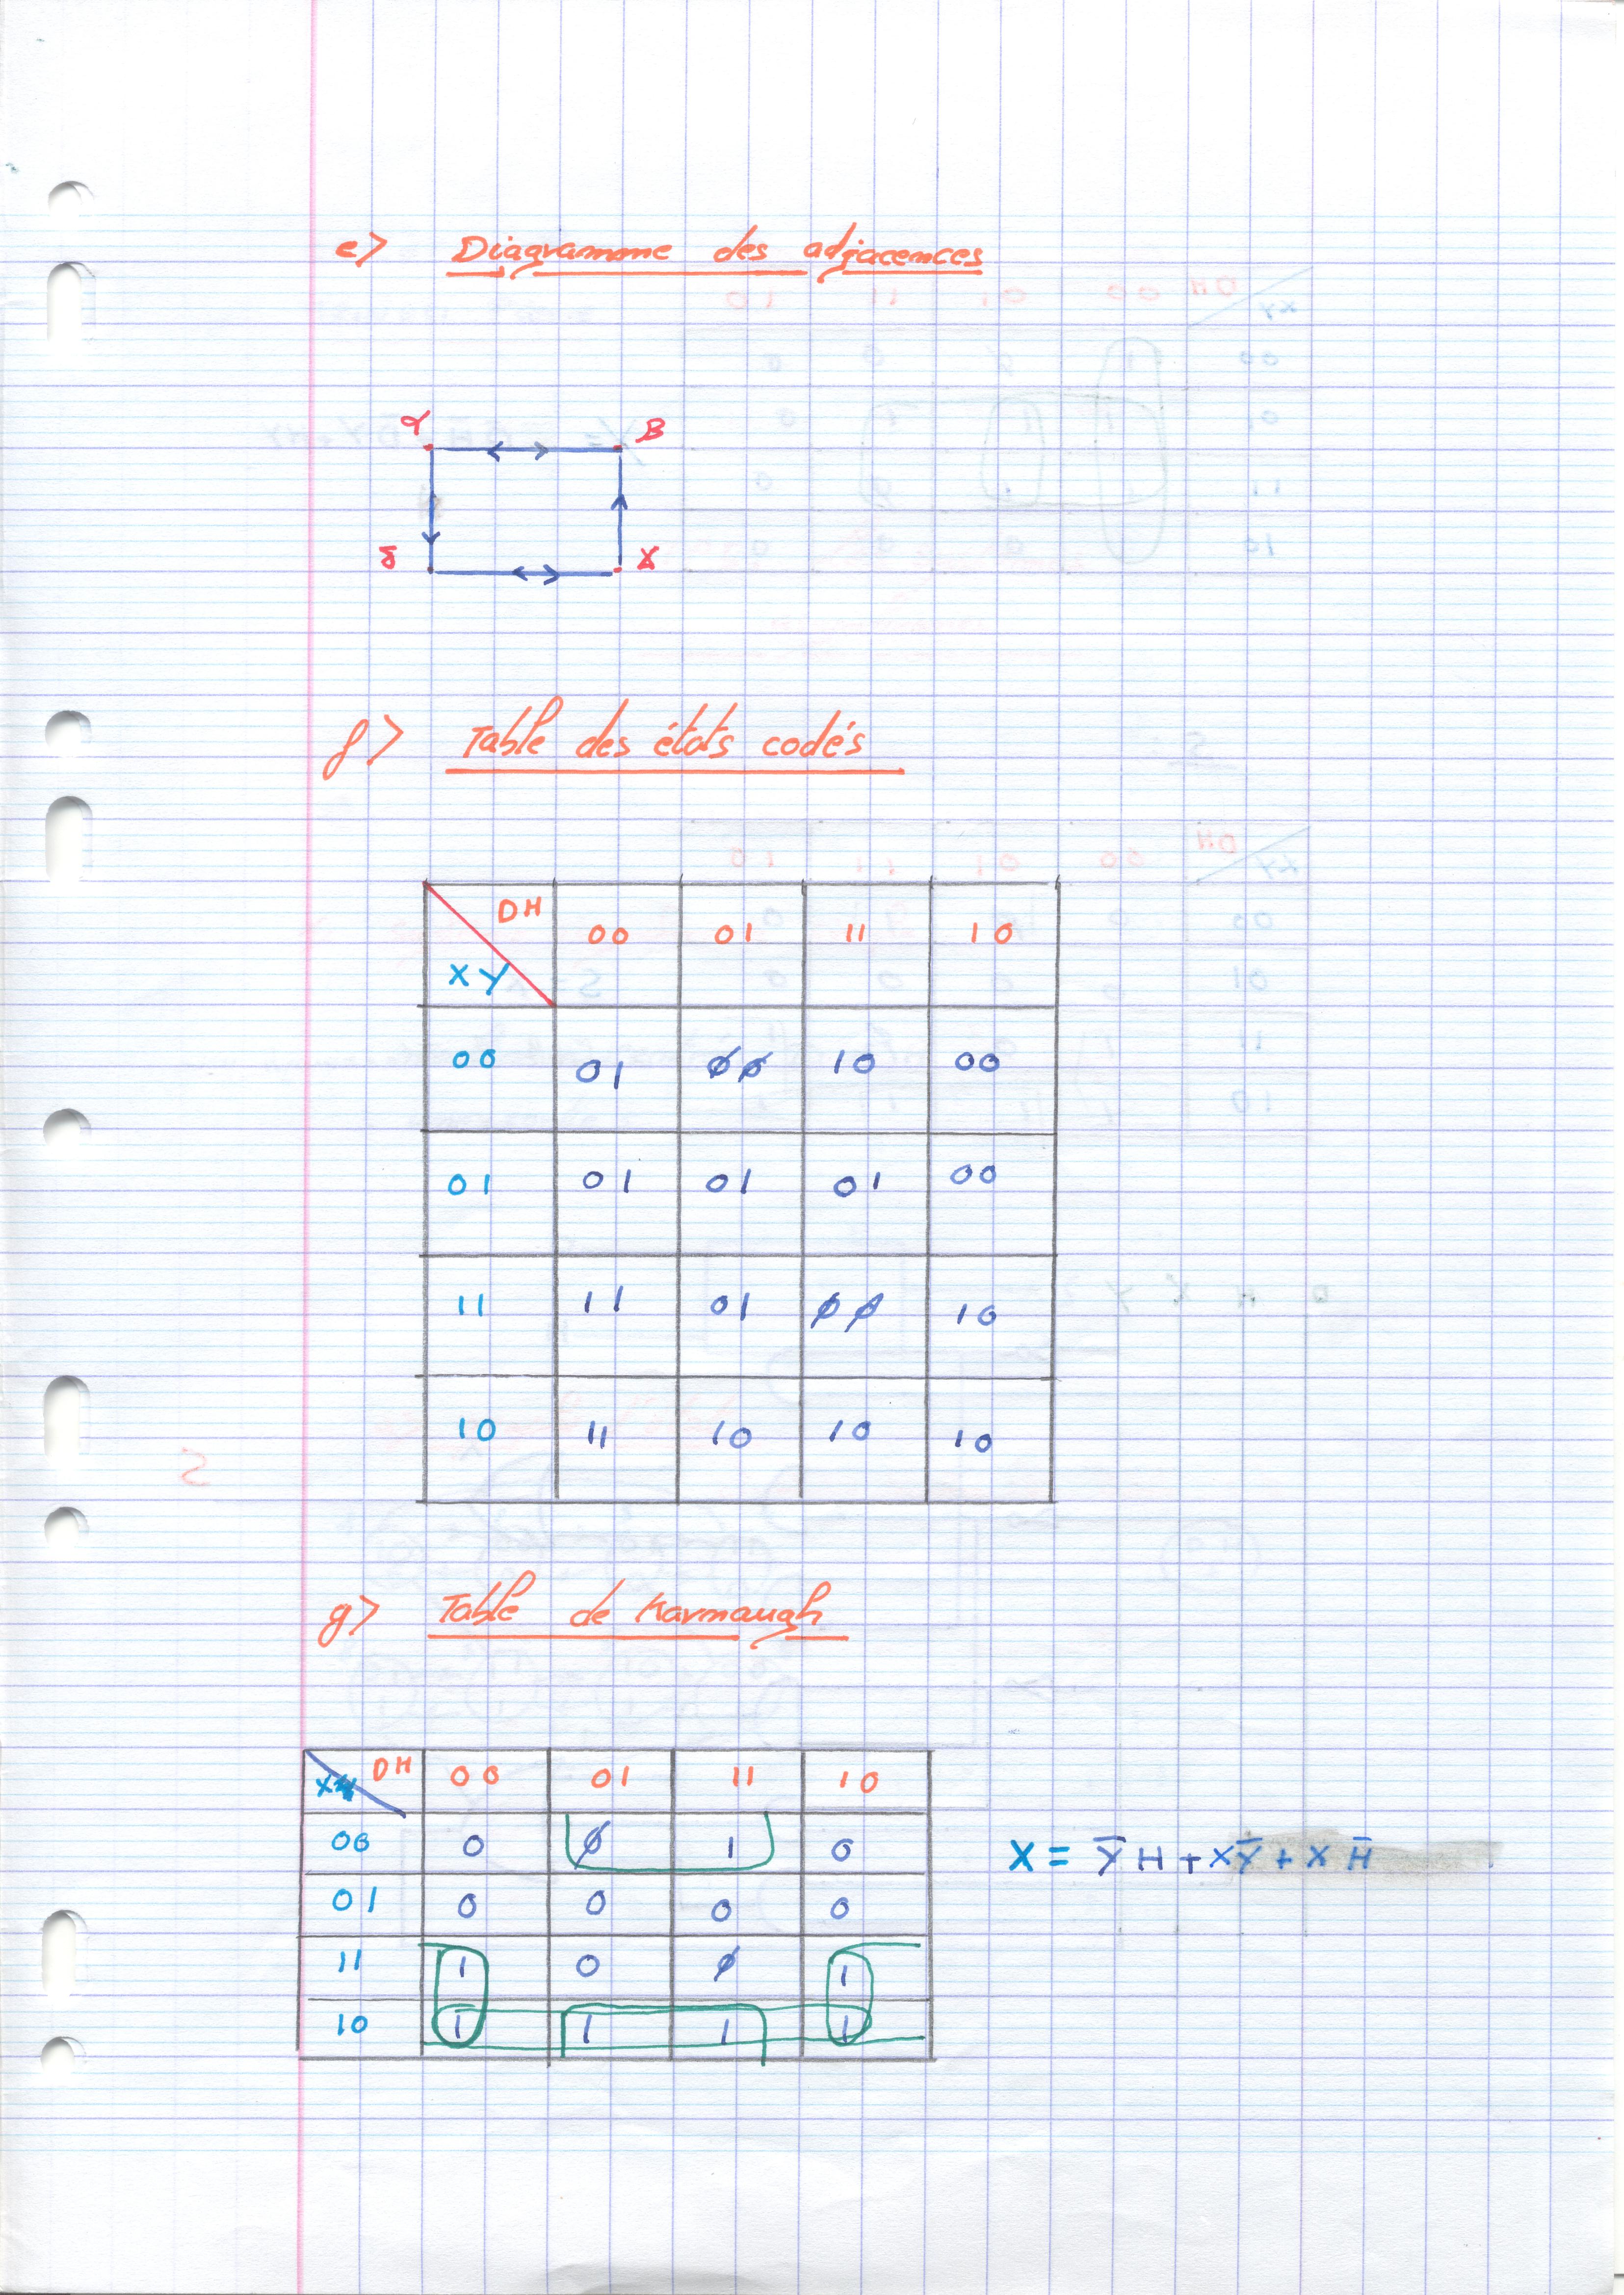 e> Diagramme des adjacences
α B
δ γ
f> Table des états codés
DH
XY 00 01 11 10
00 01 ϕϕ 10 00
01 01 01 01 00
11 11 01 ϕϕ 10
10 11 10 10 10
g> Table de Karnaugh
DH
XY 00 01 11 10
00 0 ϕ 1 0
01 0 0 0 0
11 1 0 ϕ 1
10 1 1 1 1
X = Y̅ H + X Y̅ + X H̅